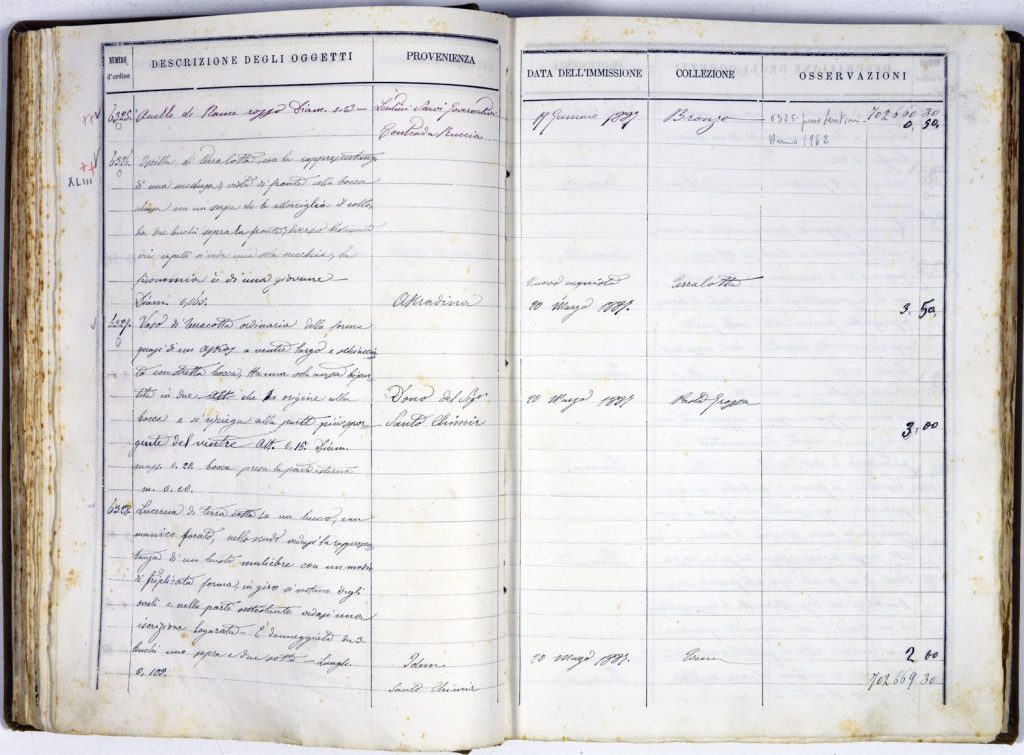 NUMERO d'ordine
DESCRIZIONE DEGLI OGGETTI
PROVENIENZA
DATA DELL'IMMISSIONE
COLLEZIONE
OSSERVAZIONI
6325. Anello di Rame rozzo Diam.
Lentini Scavi Governativi
Contrada
19 Gennaio 1887
Bronzo
702660 30
6325
0. 50.
Anno 1962
XLIII
6326. di terra cotta con la rappresentanza
di una medusa, vista di fronte colla bocca
chiusa con un serpe che le attorciglia il collo,
ha due buchi sopra la fronte,
dei capelli si vede una sola orecchia, la
fisonomia è di una giovane
Diam. 0,065.
Akradina
Nuovo acquisto
20 Marzo 1887.
Terralotta
3. 50.
6327. Vaso di terracotta ordinaria della forma
quasi di un askos a ventre largo e schiaccia
to con stretta bocca, Ha una sola ansa bipar
tita in due che ha origine alla
bocca e si spiega alla parte più spor
gente del ventre Alt. 0,15. Diam.
mass. 0. 20. bocca presa la parte esterna
m. 0. 10.
Dono del Sigr
Santo Chimir
20 Marzo 1887.
Pasta Grezza
3. 00
6328. Lucerna di terra cotta a un becco, con
manico forato, nello scudo vedesi la rappresen
tanza di un busto muliebre con un modio
di forma, in giro si notano degli
ovoli e nella parte sottostante vedesi una
iscrizione logorata – È danneggiata da 3
buchi uno sopra e due sotto – Lungh.
0. 109.
Idem
Santo Chimir
20 Marzo 1887.
2 00
702669 30